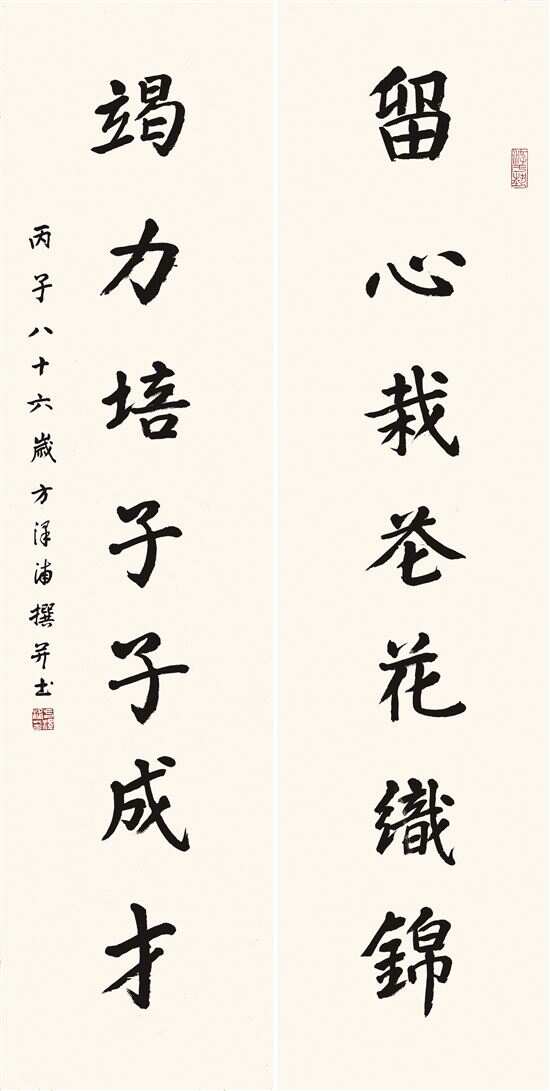 留心栽花花織錦
竭力培子子成才
丙子八十六歲方澤浦撰并书